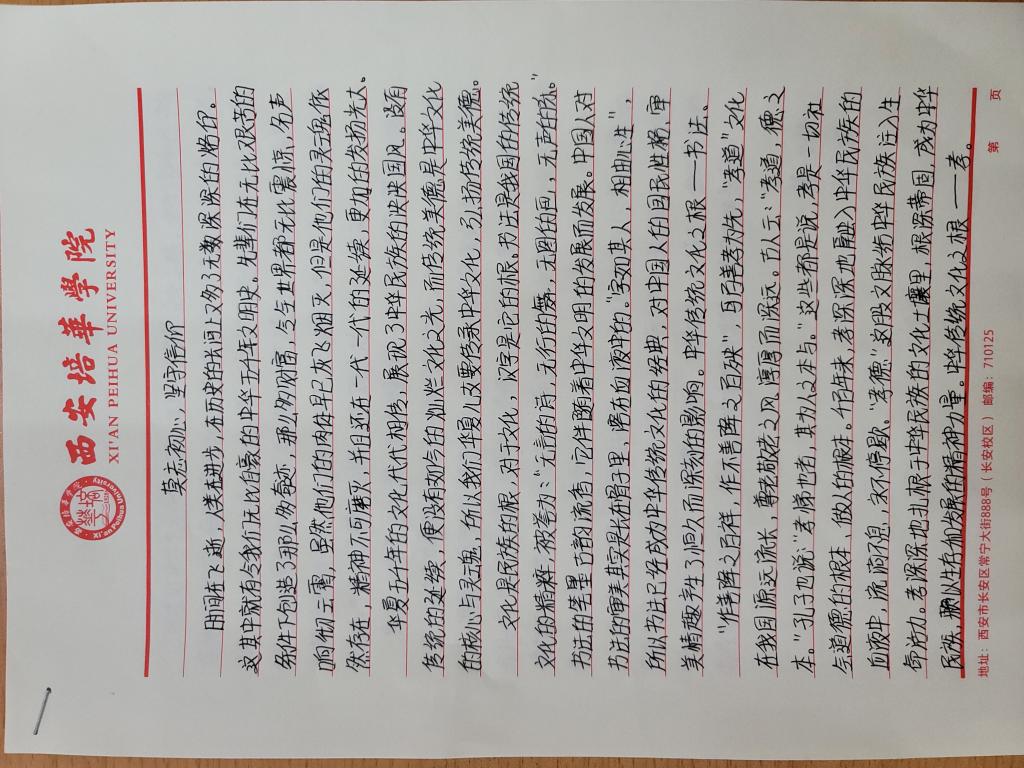 西安培華學院
XI'AN PEIHUA UNIVERSITY
莫忘初心，坚守信仰
时间在飞逝，人类在进步，在历史的长河上又多了无数深深的烙印。
这其中就有令我们无以自豪的中华五千年文明史。先辈们在无比艰苦的
条件下创造了那么多奇迹，那么多财富，令全世界都无比震惊，名声
响彻云霄，虽然他们的肉体早已灰飞烟灭，但是他们的灵魂依
然存在，精神不可磨灭，并且还在一代一代的延续，更加的发扬光大。
华夏五千年的文化代代相传，展现了中华民族的泱泱国风。没有
传统的延续，便没有如今的灿烂文化之光，而传统美德是中华文化
的核心与灵魂，所以我们华夏儿女要传承中华文化，弘扬传统美德。
文化是民族的根，对于文化，汉字是它的根。书法是我国的传统
文化的精粹，被誉为：“无言的诗，无行的舞，无图的画，无声的乐。”
书法的笔墨飞龙流香，它伴随着中华文明的发展而发展。中国人对
书法的审美其实是长在骨子里，隐在血液中的。“字如其人，相由心生”，
所以书法已经成为中华传统文化的经典，对中国人的国民性格，审
美情趣产生了恒久而深刻的影响。中华传统文化之根——书法、
“作善降之百祥，作不善降之百殃”，百善孝为先，“孝道”文化
在我国源远流长，尊老敬老之风淳厚而深远。古人云：“孝道，德之
本。”孔子也说“孝悌也者，其为人之本与。”这些都是说，孝是一切社
会道德的根本、做人的根本。千百年来，孝深深地融入中华民族的
血液中，流淌不息，永不停歇。“孝德”这股文脉为中华民族注入生
命活力。孝深深地扎根于中华民族的文化土壤里，根深蒂固，成为中华
民族赖以生存和发展的精神力量。中华传统文化之根——孝。
第 页
地址：西安市长安区常宁大街888号（长安校区）邮编：710125